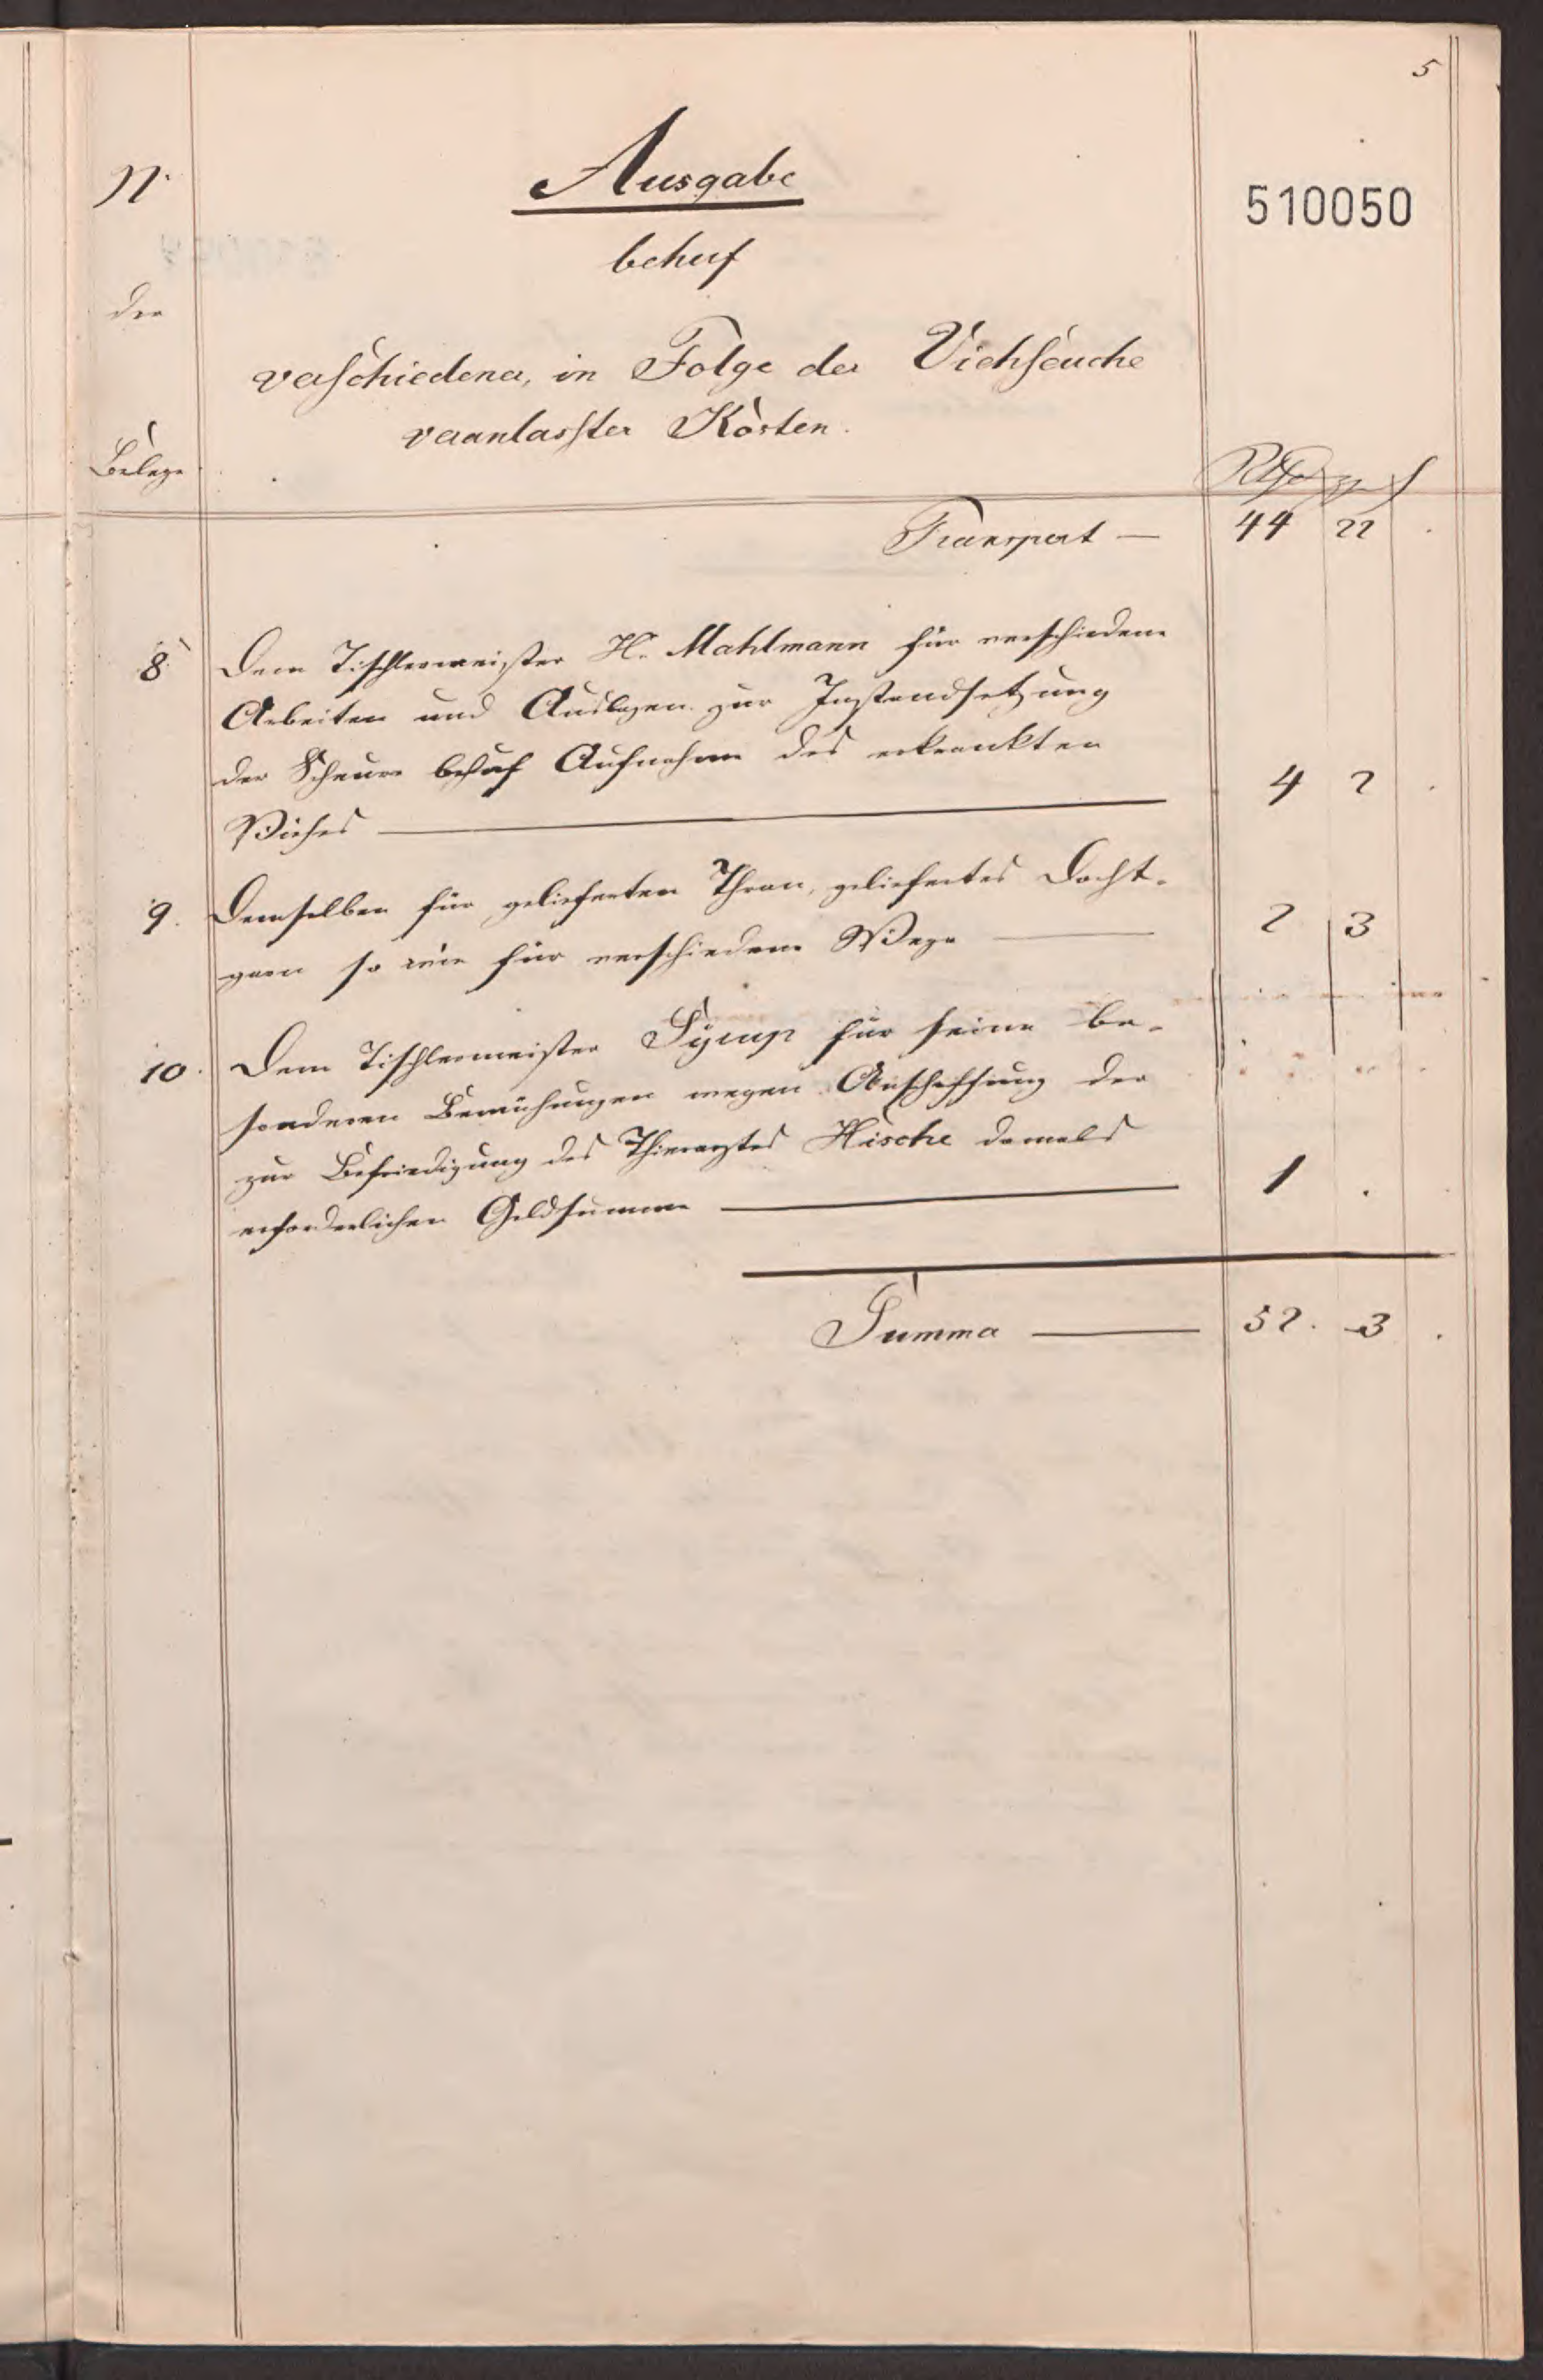 5
N.
Ausgabe
510050
behuf
der
verschiedener, in Folge der Viehseuche
veranlasster Kosten.
Belege
Transport — 44 22 .
8. Dem Tischlermeister H. Mahlmann für verschiedene
Arbeiten und Auslagen zur Instandsetzung
der Scheure behuf Aufnahme des erkrankten
Viehes — 4 2 .
9. Demselben für gelieferten Thran, geliefertes Docht-
garn so wie für verschiedene Wege — 2 3
10. Dem Tischlermeister Syrup für seine be-
sonderen Bemühungen wegen Anschaffung der
zur Befriedigung des Thierarztes Hische damals
erforderlichen Geldsumme — 1 . .
Summa — 52. 3 .